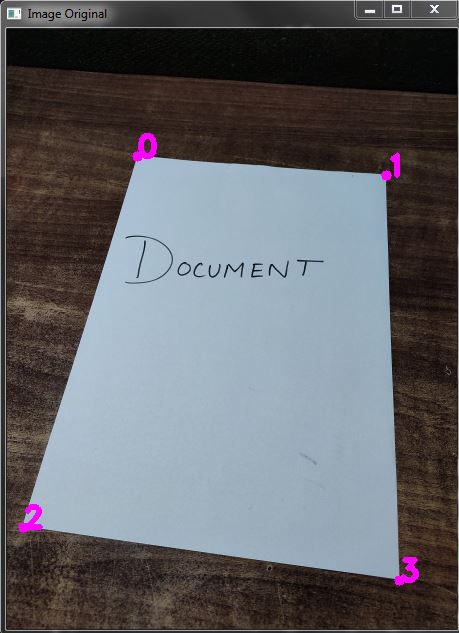 Image Original
0
1
DOCUMENT
2
3